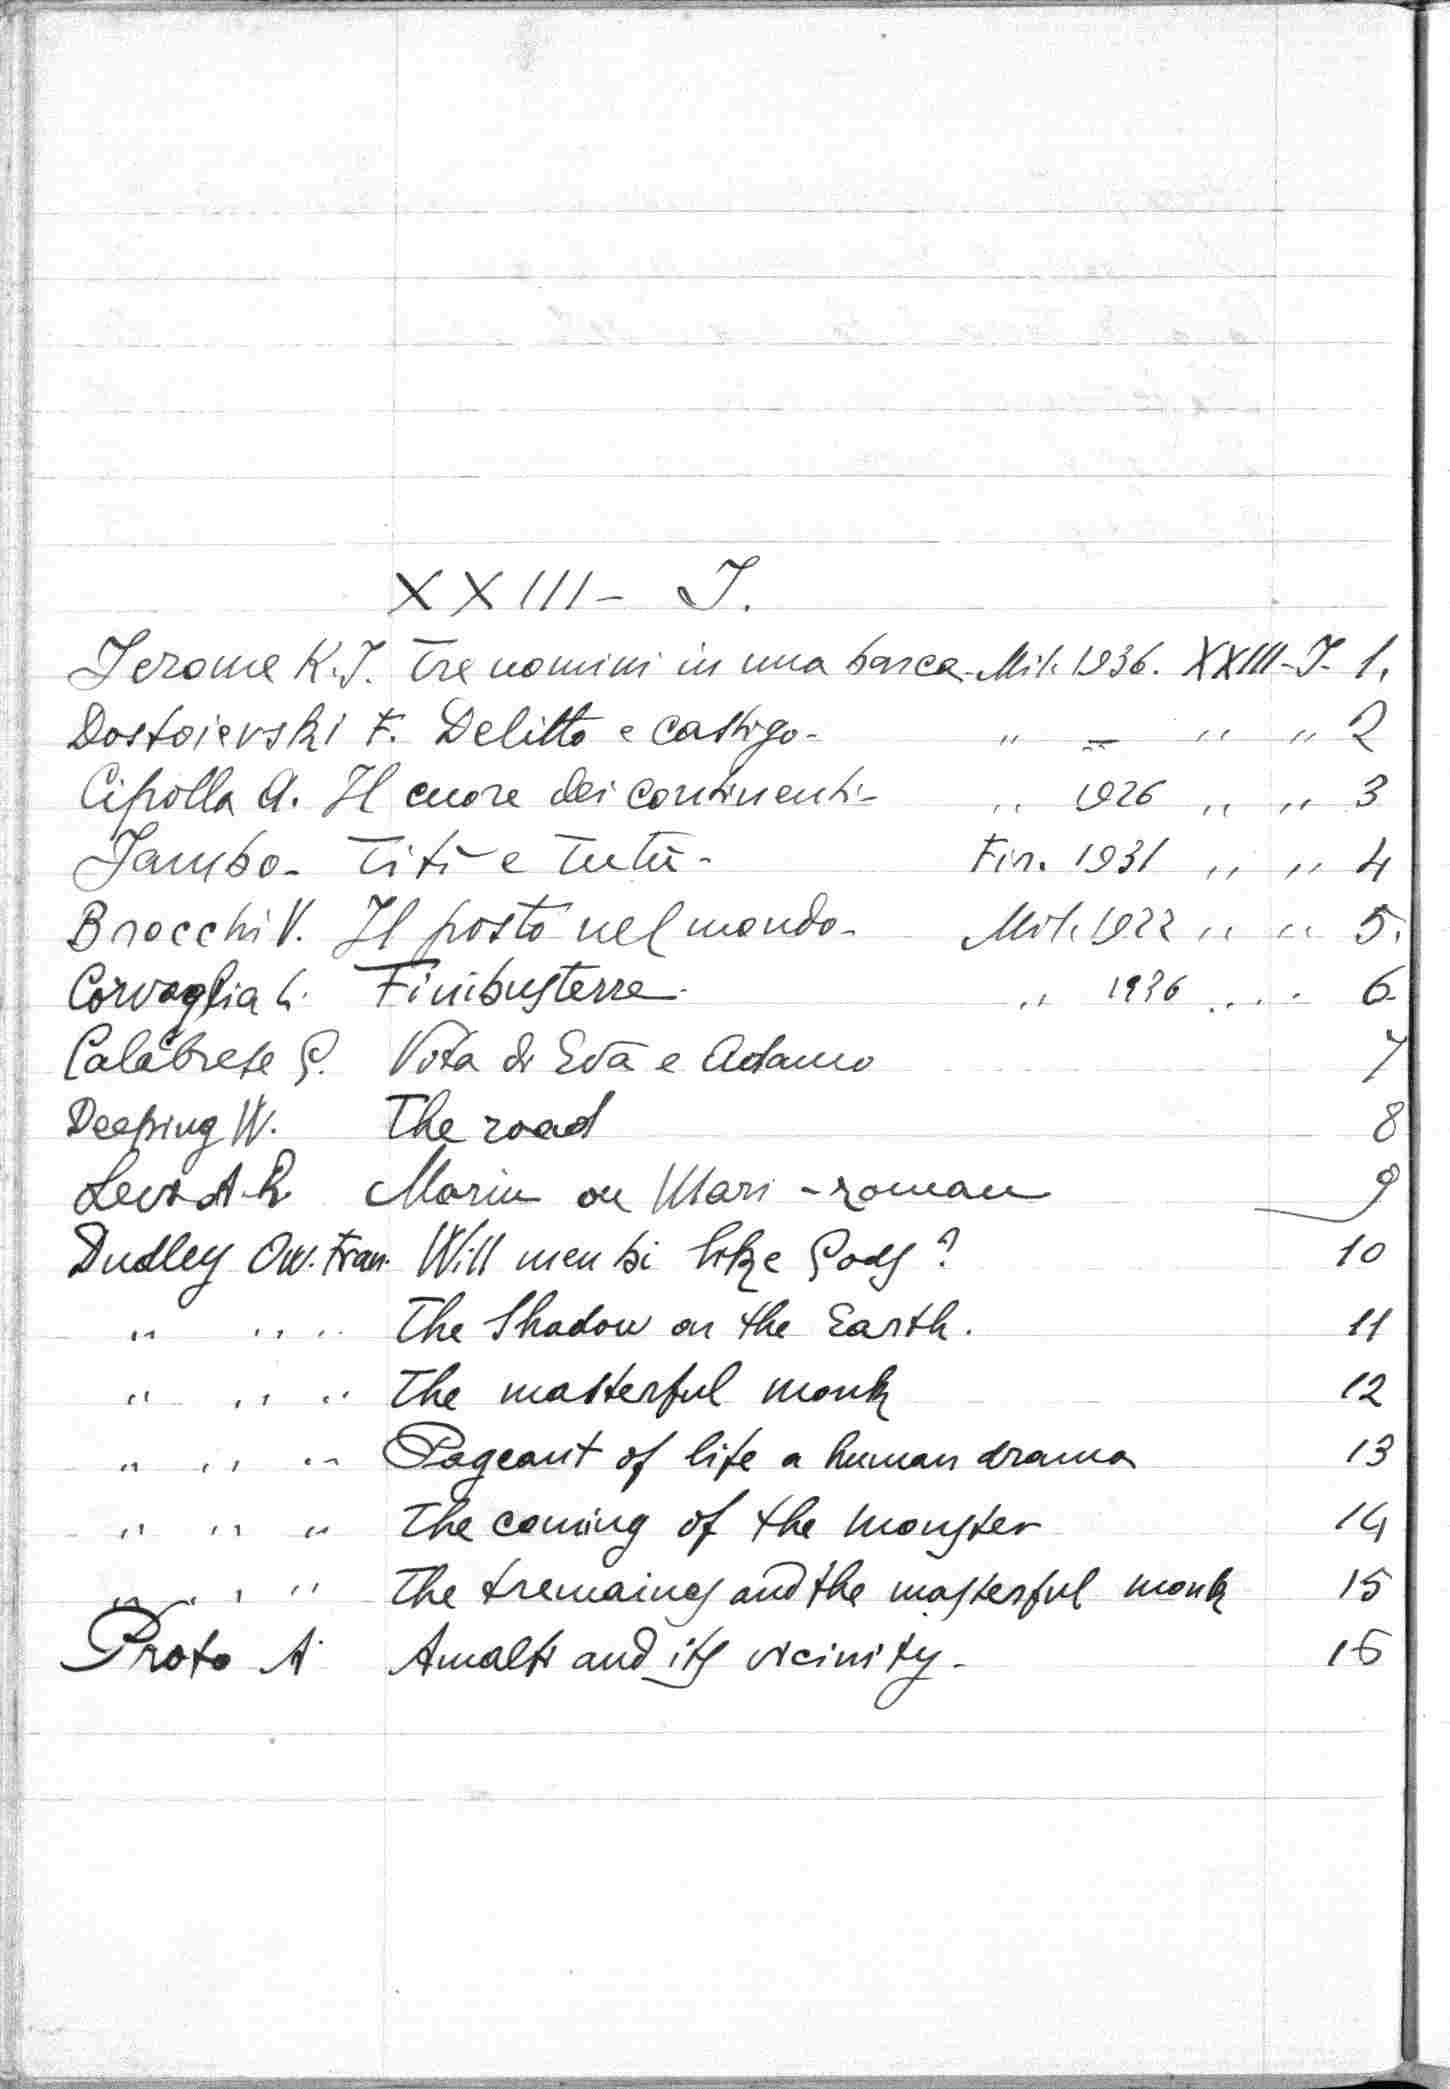 XXIII - J.
Jerome K.J. Tre uomini in una barca - Mil. 1936. XXIII - J. 1.
Dostoievski F. Delitto e castigo - " = " " 2
Cipolla A. Il cuore dei continenti - " 1926 " " 3
Jambo - Titì e Tutù - Fir. 1931 " " 4
Brocchi V. Il posto nel mondo - Mil. 1922 " " 5.
Corvaglia L. Finibusterre. " 1936 " " 6.
Calabrese G. Vita di Eva e Adamo 7
Deeping W. The road 8
Marin ou Mari - roman 9
Dudley Ow. Fran. Will men bi like Gods? 10
" " " The Shadow on the Earth. 11
" " " The masterful monk 12
" " " Pageant of life a human drama 13
" " " The coming of the monster 14
" " " The tremaines and the masterful monk 15
Proto A. Amalfi and its vicinity - 16